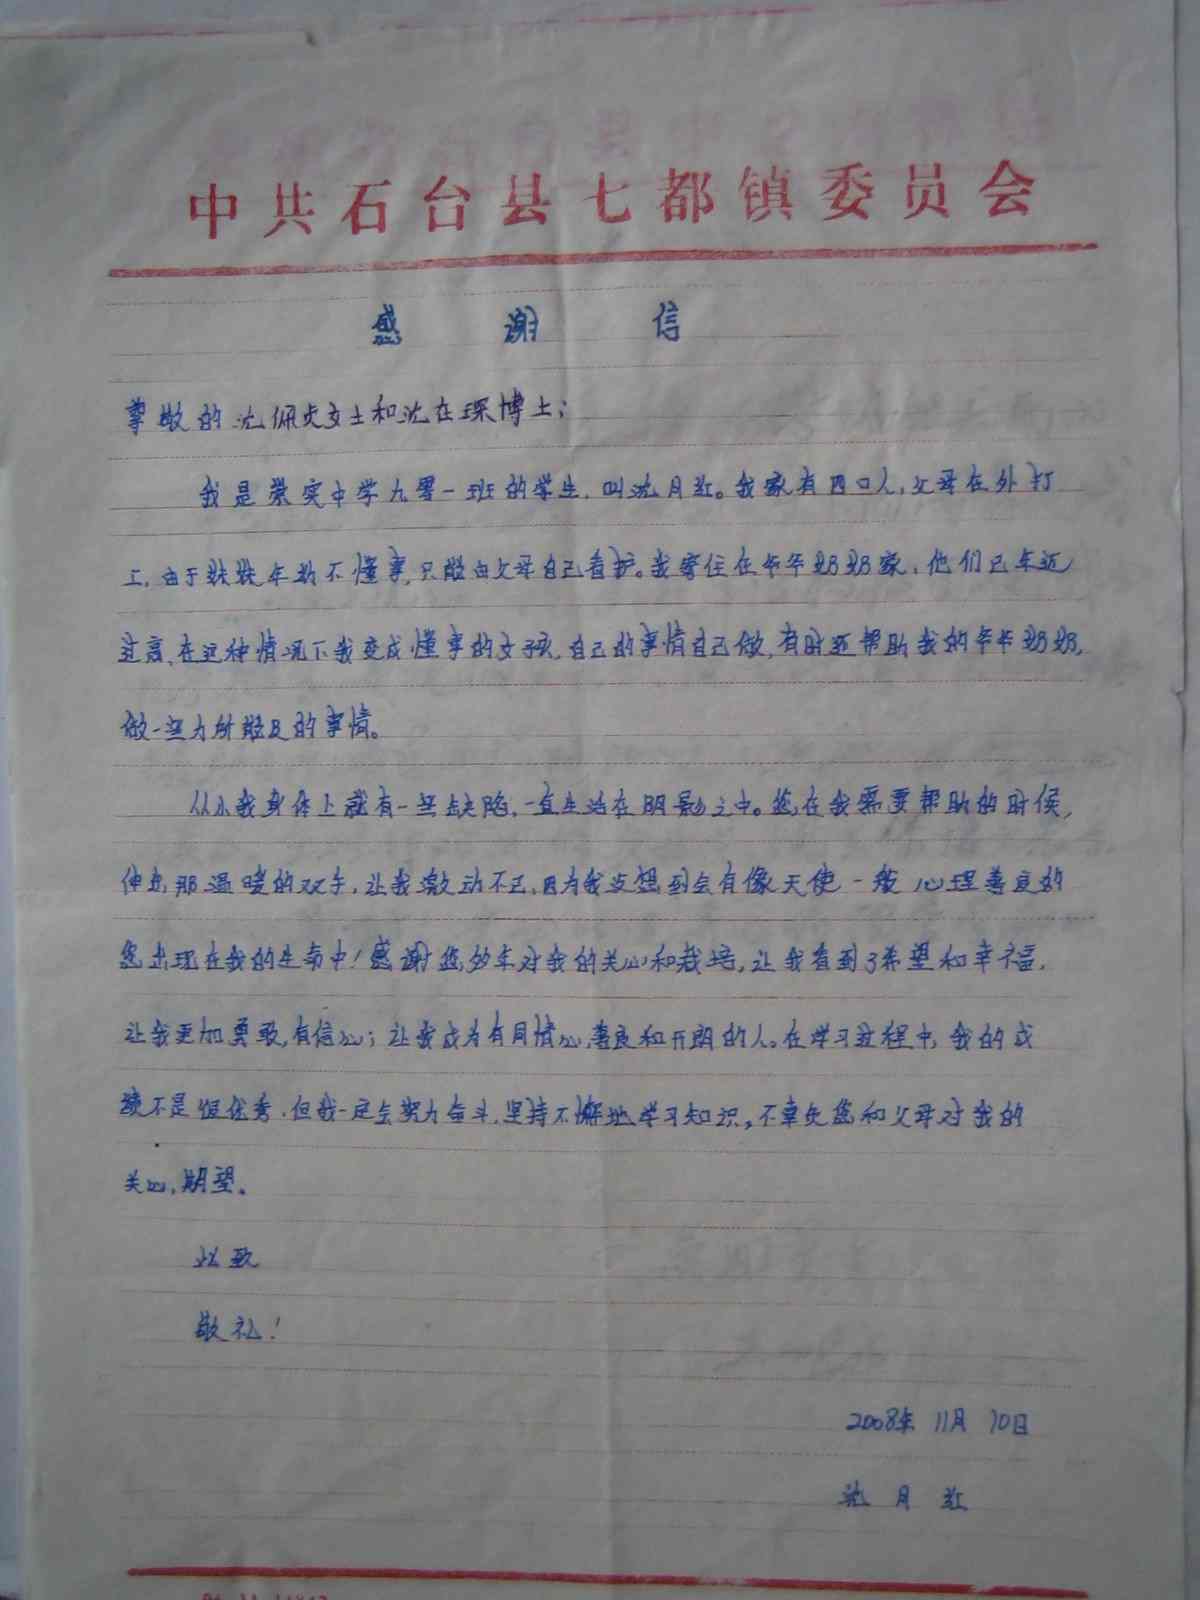 中共石台县七都镇委员会
感谢信
尊敬的沈佩贞女士和沈在琛博士：
我是崇实中学九零一班的学生，叫沈月红。我家有四口人，父母在外打
工，由于妹妹年幼不懂事，只能由父母自己看护。我寄住在爷爷奶奶家，他们已年近
过高，在这种情况下我变成懂事的女孩，自己的事情自己做，有时还帮助我的爷爷奶奶，
做一些力所能及的事情。
从小我身体上就有一些缺陷，一直生活在阴影之中。您在我需要帮助的时候，
伸出那温暖的双手，让我激动不已，因为我没想到会有像天使一般心理善良的
您出现在我的生命中！感谢您多年对我的关心和栽培，让我看到了希望和幸福，
让我更加勇敢，有信心；让我成为有同情心，善良和开朗的人。在学习过程中，我的成
绩不是很优秀，但我一定会努力奋斗，坚持不懈地学习知识，不辜负您和父母对我的
关心，期望。
此致
敬礼！
2008年 11月 10日
沈月红